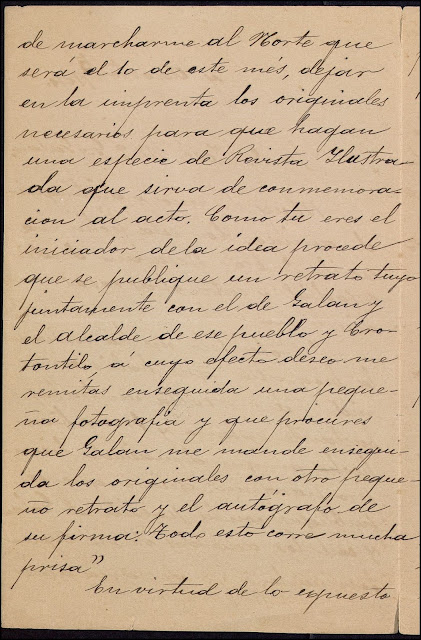 de marcharme al Norte que
será el 10 de este més, dejar
en la imprenta los originales
necesarios para que hagan
una especie de Revista Ilustra-
da que sirva de conmemora-
cion al acto. Como tu eres el
iniciador de la idea procede
que se publique un retrato tuyo
juntamente con el de Galan y
el alcalde de ese pueblo y Cro-
tontilo, á cuyo efecto deseo me
remitas enseguida una peque-
ña fotografía y que procures
que Galan me mande ensegui-
da los originales con otro peque-
ño retrato y el autógrafo de
su firma. Todo esto corre mucha
prisa"
En virtud de lo expuesto